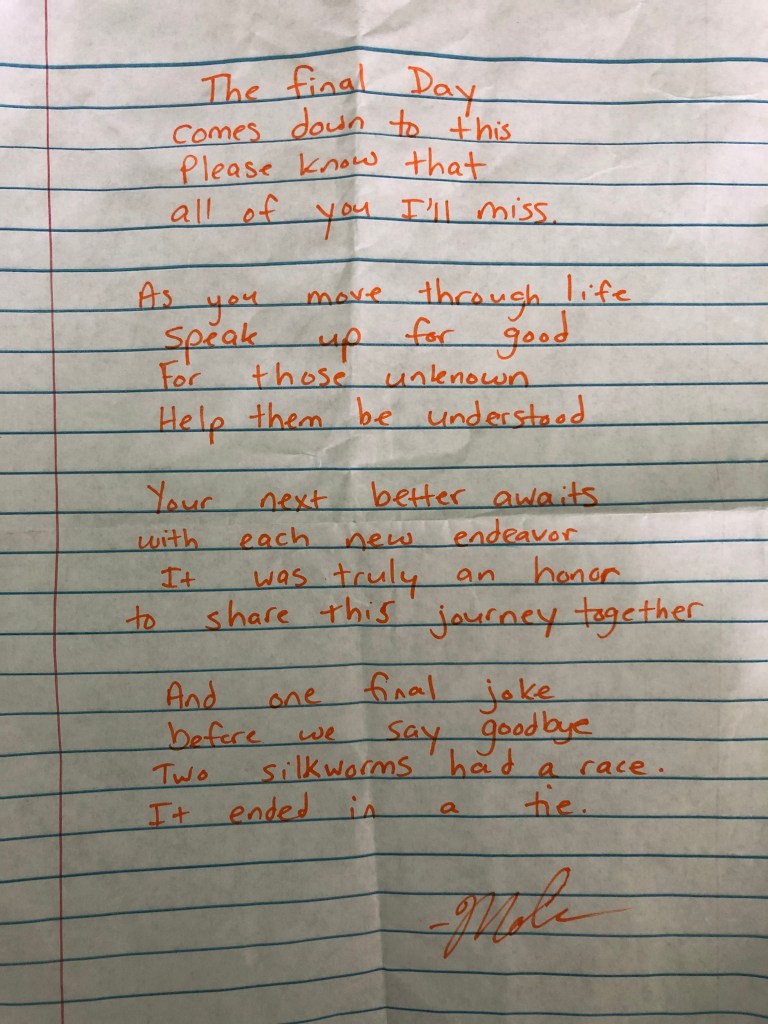 The final Day
comes down to this
Please know that
all of you I'll miss.
As you move through life
speak up for good
For those unknown
Help them be understood
Your next better awaits
with each new endeavor
It was truly an honor
to share this journey together
And one final joke
before we say goodbye
Two silkworms had a race.
It ended in a tie.